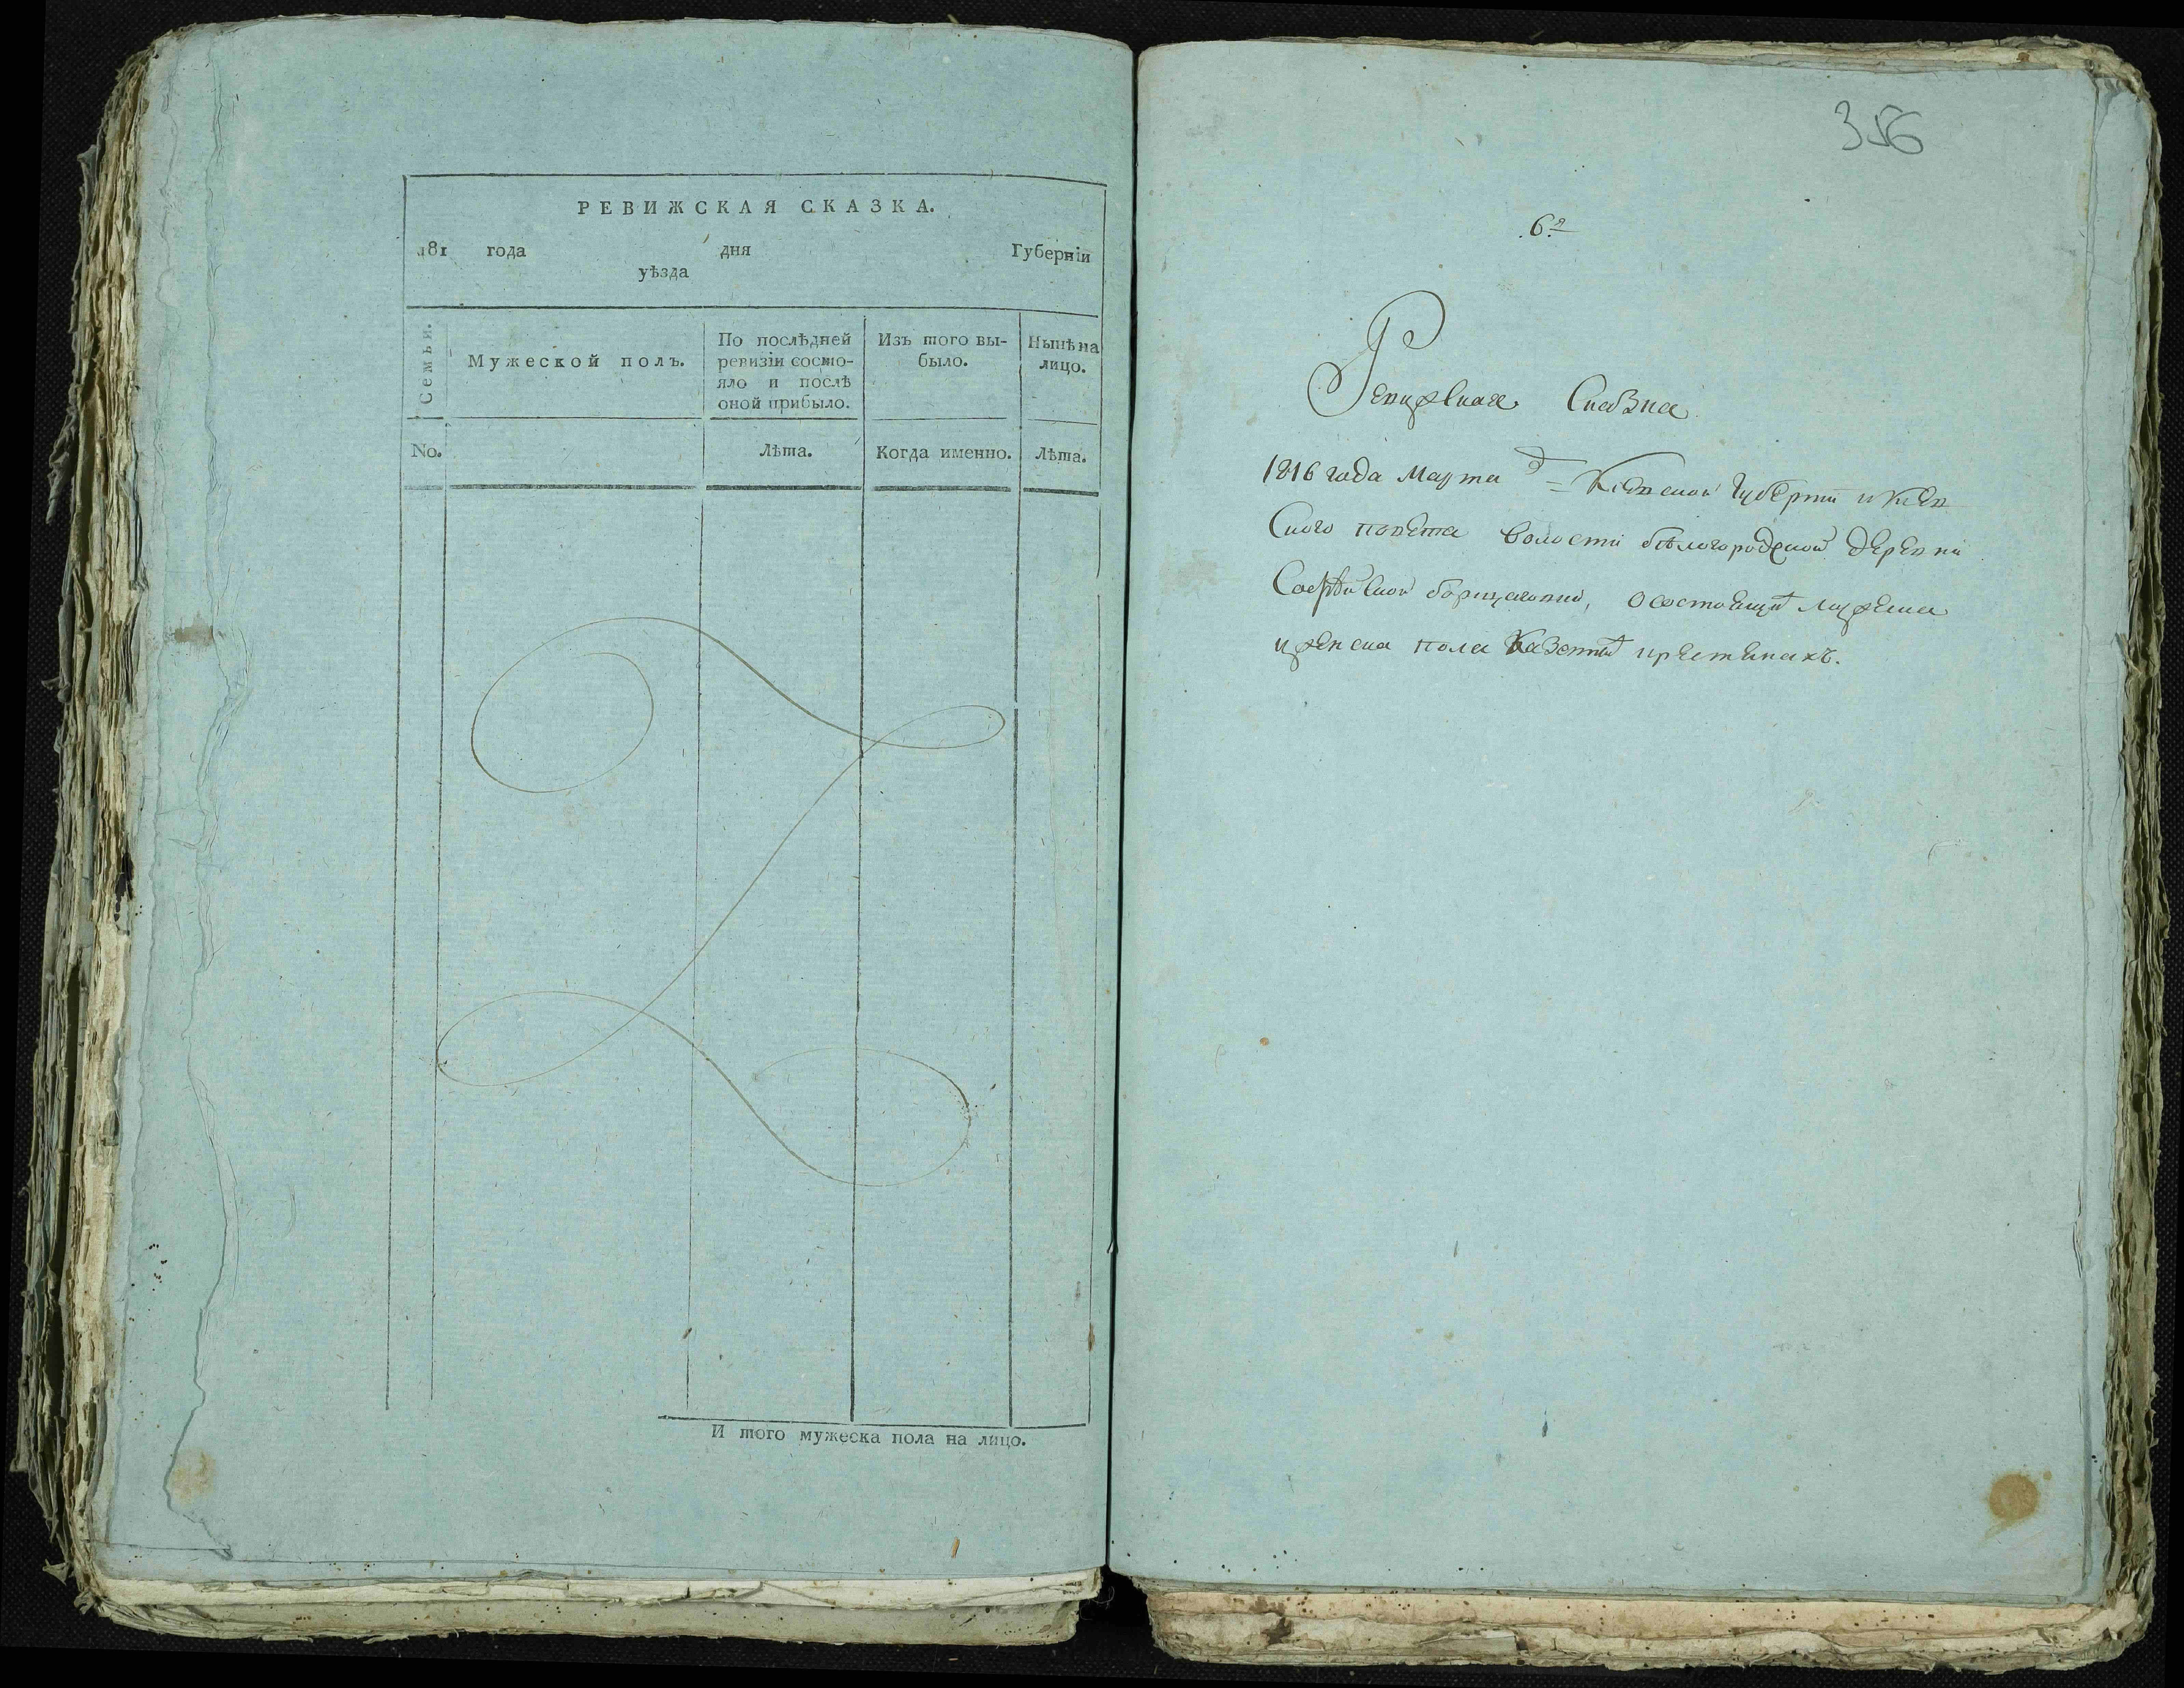 РЕВИЖСКАЯ СКАЗКА.
181 года дня Губерніи
уѣзда
Семьи.
Мужеской полъ.
По послѣдней
ревизіи состо-
яло и послѣ
оной прибыло.
Изъ того вы-
было.
Нынѣ на
лицо.
No.
Лѣта.
Когда именно.
Лѣта.
И того мужеска пола на лицо.
356
6.
Ревижская Сказка
1816 года Марта Киевской Губернии и Киев
ского повета волости белогородской деревни
Софийской борщаговки, о состоящих мужеска
и женска пола Казенных крестянахъ.